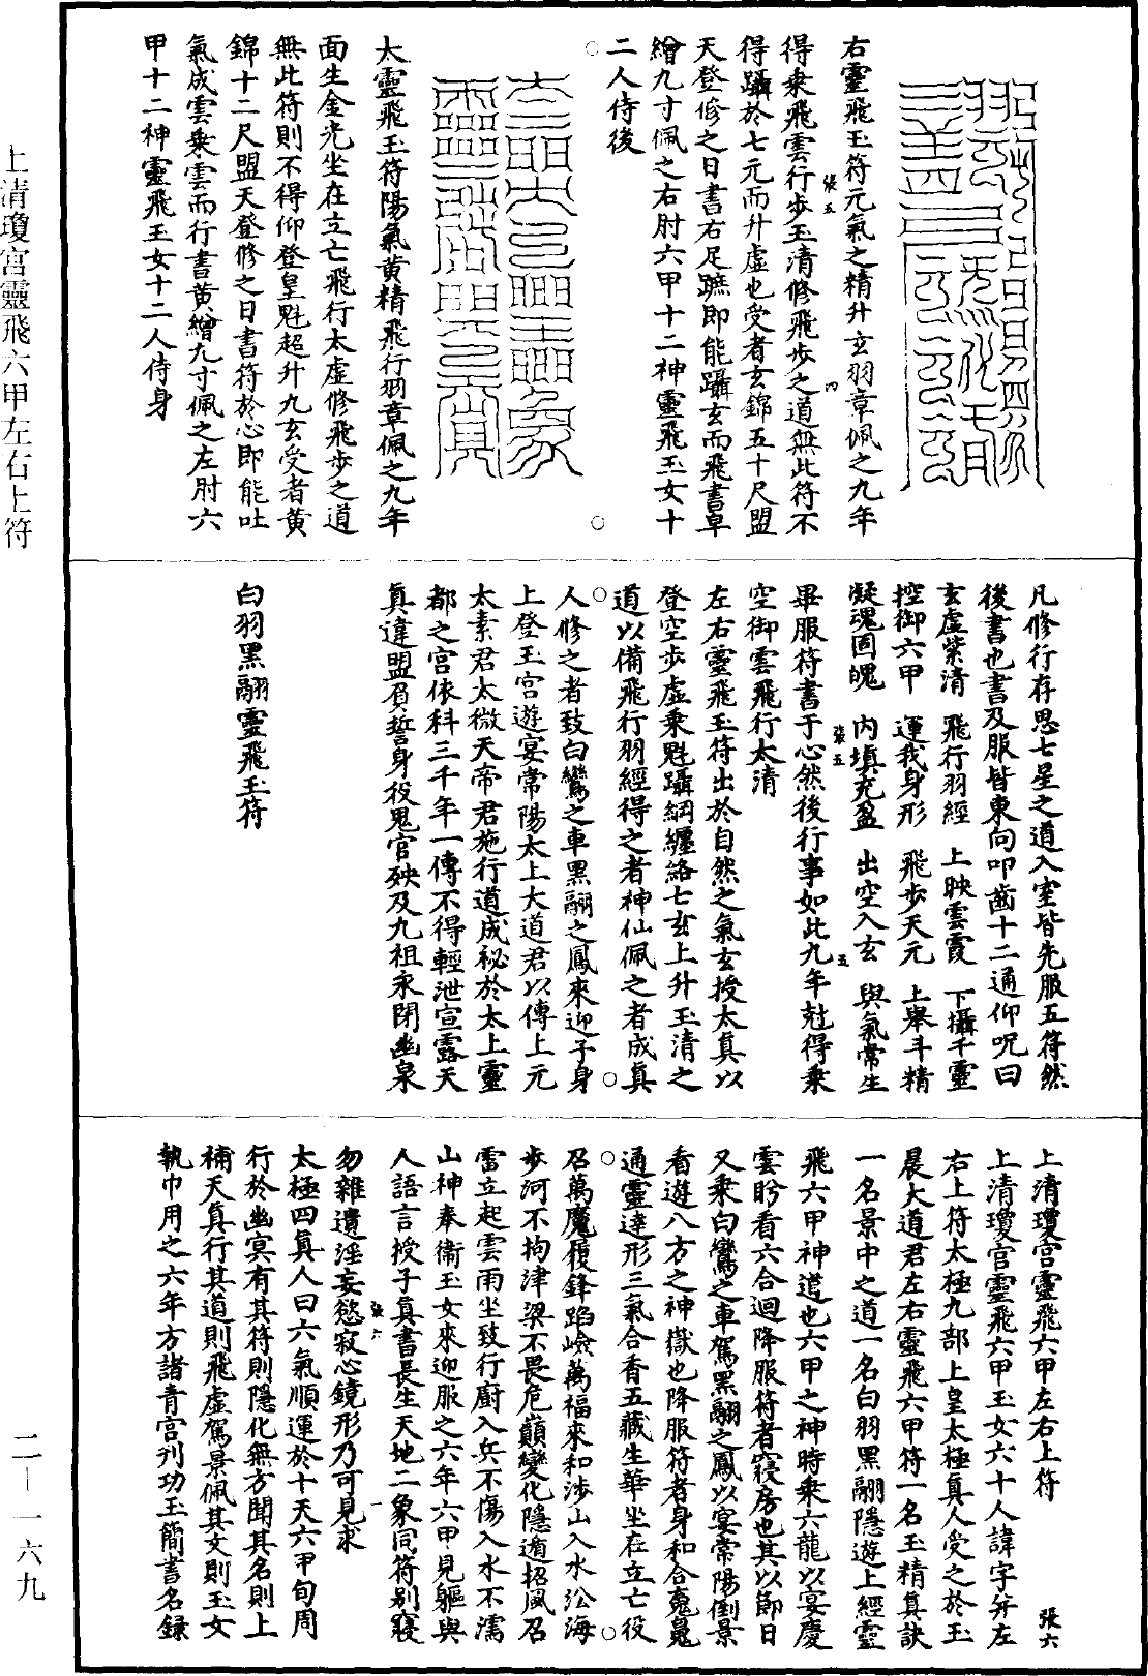 上清瓊宮靈飛六甲左右上符
二—一六九
右靈飛玉符元氣之精升玄羽章佩之九年
得乘飛雲行步玉清修飛步之道無此符不
得躡於七元而升虛也受者玄錦五十尺盟
天登修之日書右足蹠即能躡玄而飛書皁
繒九寸佩之右肘六甲十二神靈飛玉女十
二人侍後
太靈飛玉符陽氣黃精飛行羽章佩之九年
面生金光坐在立亡飛行太虛修飛步之道
無此符則不得仰登皇魁超升九玄受者黃
錦十二尺盟天登修之日書符於心即能吐
氣成雲乘雲而行書黃繒九寸佩之左肘六
甲十二神靈飛玉女十二人侍身
凡修行存思七星之道入室皆先服五符然
後書也書及服皆東向叩齒十二通仰呪曰
玄虛紫清 飛行羽經 上映雲霞 下攝千靈
控御六甲 運我身形 飛步天元 上舉斗精
凝魂固魄 內填充盈 出空入玄 與氣常生
畢服符書于心然後行事如此九年尅得乘
空御雲飛行太清
左右靈飛玉符出於自然之氣玄授太真以
登空步虛乘魁躡綱纏絡七玄上升玉清之
道以備飛行羽經得之者神仙佩之者成真
人修之者致白鸞之車黑翮之鳳來迎子身
上登玉宮遊宴常陽太上大道君以傳上元
太素君太微天帝君施行道成祕於太上靈
都之宮依科三千年一傳不得輕泄宣露天
真違盟負誓身役鬼官殃及九祖永閉幽泉
白羽黑翮靈飛玉符
上清瓊宮靈飛六甲左右上符 張六
上清瓊宮靈飛六甲玉女六十人諱字并左
右上符太極九部上皇太極真人受之於玉
晨大道君左右靈飛六甲符一名玉精真訣
一名景中之道一名白羽黑翮隱遊上經靈
飛六甲神道也六甲之神時乘六龍以宴慶
雲眄看六合迴降服符者寢房也其以節日
又乘白鸞之車駕黑翮之鳳以宴常陽倒景
看遊八方之神嶽也降服符者身和合䰟魄
通靈達形三氣合香五藏生華坐在立亡役
召萬魔履鋒蹈嶮萬福來和涉山入水泛海
步河不拘津梁不畏危巔變化隱遁招風召
雷立起雲雨坐致行廚入兵不傷入水不濡
山神奉衛玉女來迎服之六年六甲見軀與
人語言授子真書長生天地二象同符別寢
勿雜遺淫妄慾寂心鏡形乃可見求
太極四真人曰六氣順運於十天六甲旬周
行於幽冥有其符則隱化無方聞其名則上
補天真行其道則飛虛駕景佩其文則玉女
執巾用之六年方諸青宮刊功玉簡書名錄